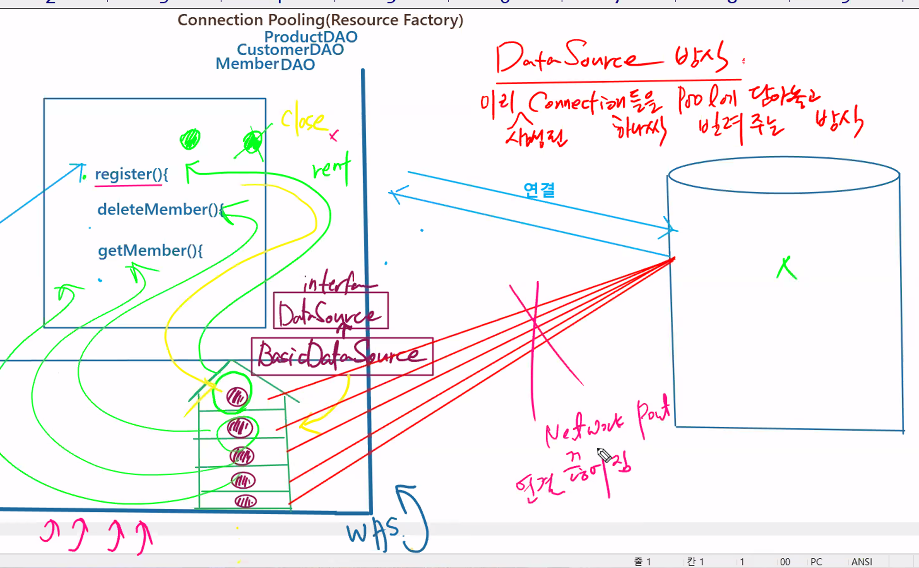 Connection Pooling(Resource Factory)
ProductDAO
CustomerDAO
MemberDAO
DataSource 방식.
미리 Connection들을 Pool에 담아놓고
생성된 하나씩 빌려주는 방식
close
x
rent
register(){
deleteMember(){
getMember(){
연결
X
DataSource
BasicDataSource
Network
연결 끊어짐
WAS
줄 1 칸 1 1 00 PC ANSI